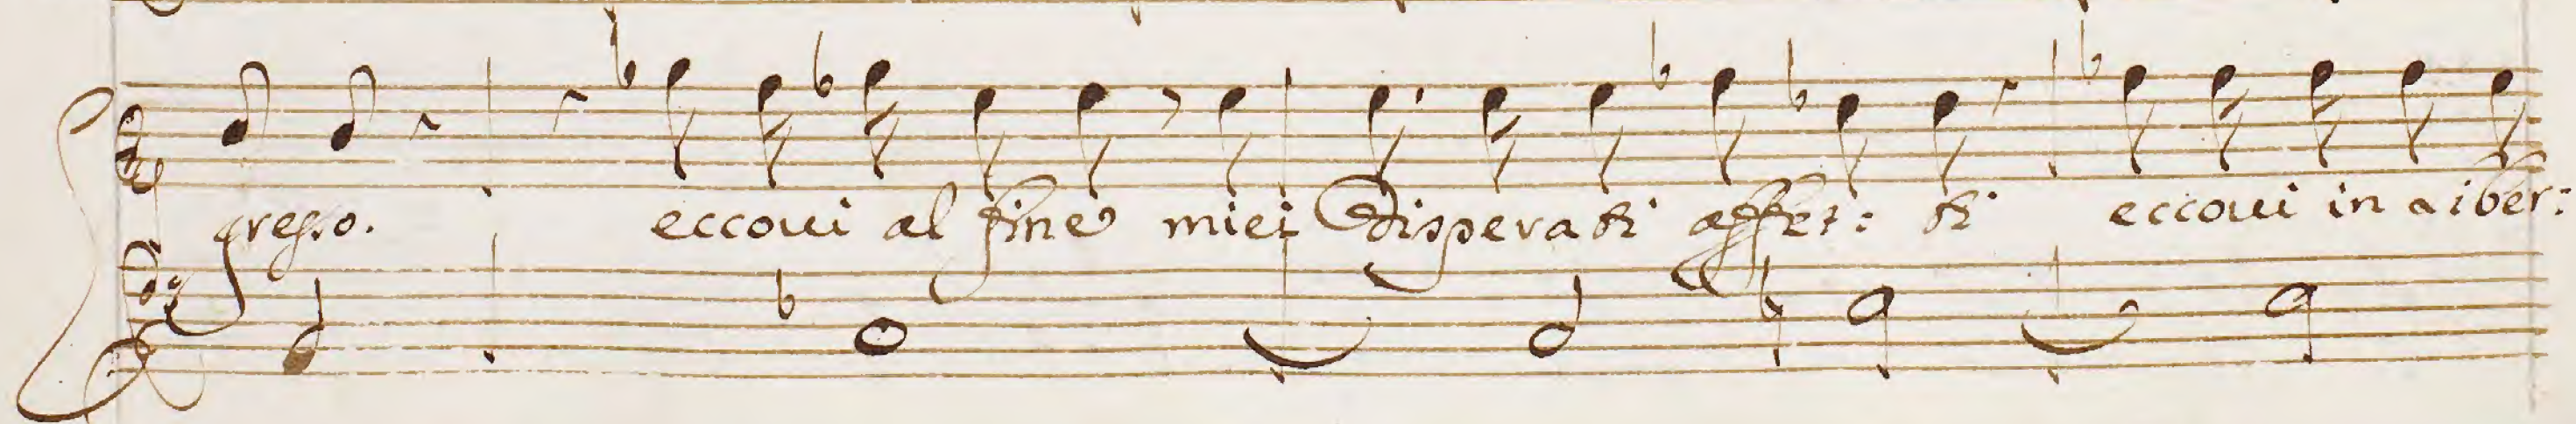 presso. eccoui al fine miei disperati affet: ti eccoui in a iber: